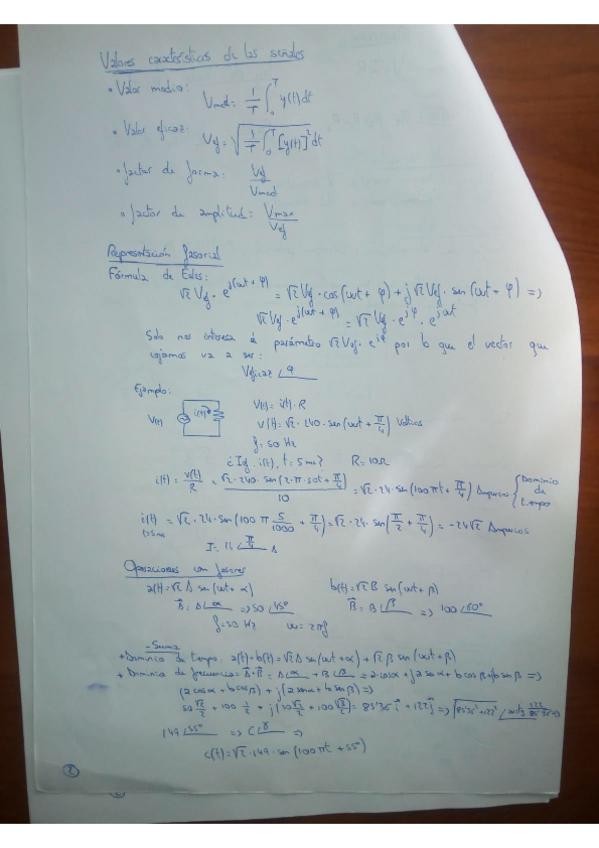 Valores característicos de las señales
• Valor medio: Vmed = 1/T ∫₀ᵀ y(t)dt
• Valor eficaz: Vef = √(1/T ∫₀ᵀ [y(t)]² dt)
• factor de forma: Vef/Vmed
• factor de amplitud: Vmax/Vef
Representación fasorial
Fórmula de Euler:
√2 Vef · e^j(ωt + φ) = √2 Vef · cos(ωt + φ) + j √2 Vef · sen(ωt + φ) =>
√2 Vef · e^j(ωt + φ) = √2 Vef · e^jφ · e^jωt
Solo nos interesa el parámetro √2 Vef · e^jφ por lo que el vector que
cojamos va a ser:
Veficaz ∠φ
Ejemplo:
V(t) i(t)
V(t) = i(t) · R
v(t) = √2 · 240 · sen(ωt + π/4) Voltios
f = 50 Hz
¿ Ief, i(t), t = 5 ms? R = 10Ω
i(t) = v(t)/R = √2 · 240 · sen(2 · π · 50t + π/4)/10 = √2 · 24 · sen(100πt + π/4) Amperios { Dominio de tiempo
i(t) = √2 · 24 · sen(100 π 5/1000 + π/4) = √2 · 24 · sen(π/2 + π/4) = -24√2 Amperios
t=5ms
Operaciones con fasores
a(t) = √2 A sen(ωt + α) b(t) = √2 B sen(ωt + β)
A∠α => 50∠45° B = B∠β => 100∠60°
f = 50 Hz ω = 2πf
- Suma
• Dominio de tiempo: a(t) + b(t) = √2 A sen(ωt + α) + √2 B sen(ωt + β)
• Dominio de frecuencia: A + B = A∠α + B∠β = a cosα + j a senα + b cosβ + j b senβ =>
(a cosα + b cosβ) + j(a senα + b senβ) =>
50 √2/2 + 100 1/2 + j(50 √2/2 + 100 √3/2) = 85'36 i + 122 j => √(85'36² + 122²) ∠arctg 122/85'36 =>
149∠55° => C∠γ =>
c(t) = √2 · 149 · sen(100πt + 55°)
2